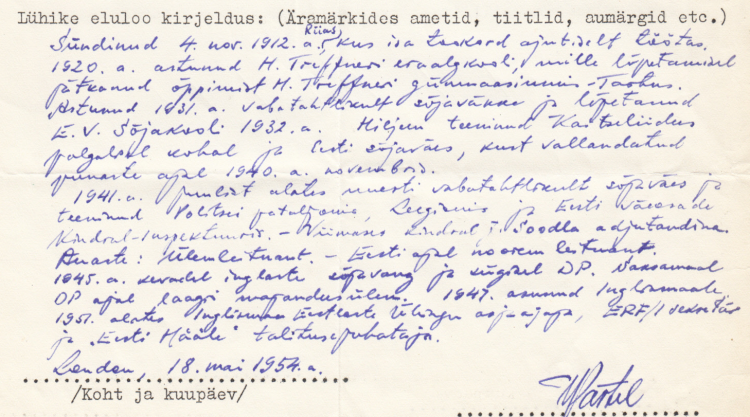 Lühike eluloo kirjeldus: (Äramärkides ametid, tiitlid, aumärgid etc.)
Sündinud 4. nov. 1912.a. Riias, kus isa taskord ajutiselt töötas.
1920. a. astunud H. Treffneri eraalgkooli, mille lõpetamisel
jätkanud õppimist H. Treffneri gümnaasiumis - Tartus.
Astunud 1931. a. vabatahtlikult sõjaväkke ja lõpetanud
E. V. Sõjakooli 1932. a. Hiljem teeninud Kaitseliidus
palgalisel kohal ja Eesti sõjaväes, kust vallandatud
punaste ajal 1940. a. novembris.
1941. a. juulist alates uuesti vabatahtlikult sõjaväes ja
teeninud Politsei pataljonis, Leegionis ja Eesti Väeosade
Kindral-Inspektuuris. - Viimases kindral J. Soodla adjutandina.
Auaste: Ülemleitnant. - Eesti ajal noorem leitnant.
1945. a. kevadel inglaste sõjavang ja sügisel DP. Saksamaal
DP ajal laagri majandusülem. 1947. asunud Inglismaale
1951. alates Inglismaa Eestlaste Ühingu asjaajaja, ERF/I sekretär
ja "Eesti Hääle" talitusejuhataja.
London, 18. mai 1954. a.
/Koht ja kuupäev/